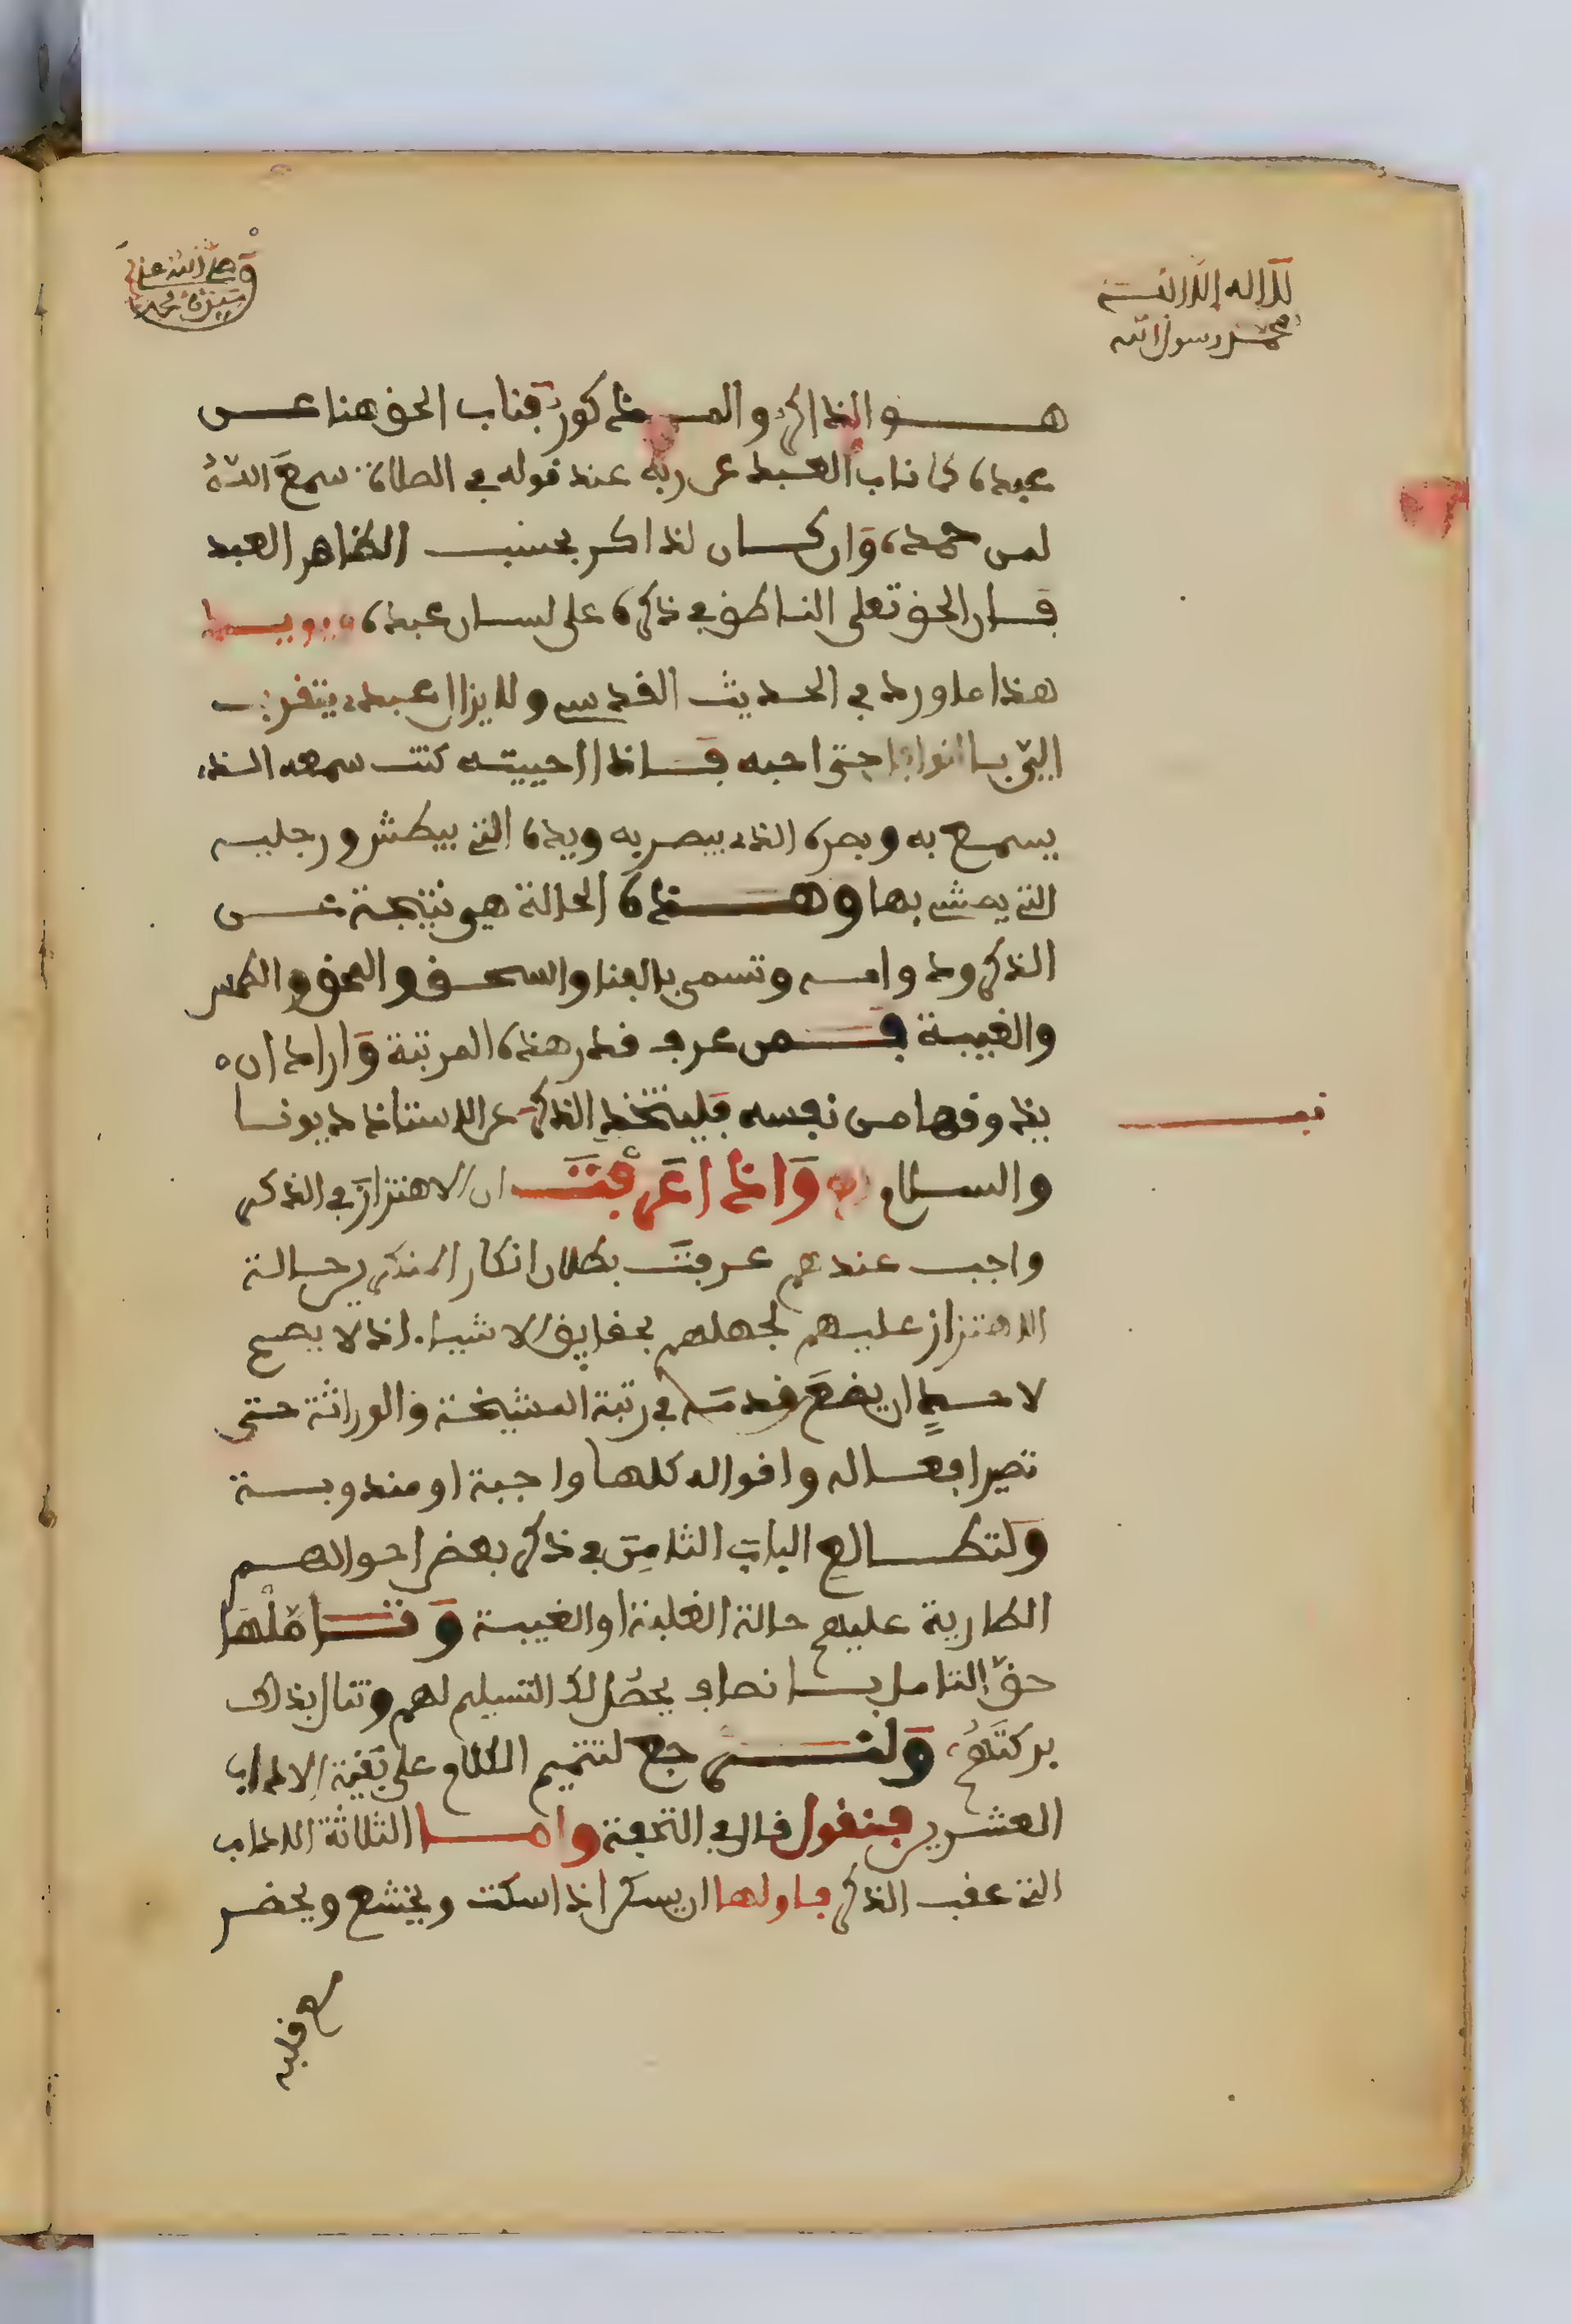 لا اله الا الله
محمد رسول الله
وصلى الله على
سيدنا محمد
هو الذاكر والمذكور فناب الحق هنا عن
عبده كما ناب العبد عن ربه عند قوله في الصلاة سمع الله
لمن حمده وان كان لذاكر بحسب الظاهر العبد
فان الحق تعلى الناطق في ذكره على لسان عبده
هذا ما ورد في الحديث القدسي ولا يزال عبدي يتقرب
الي بالنوافل حتى احبه فاذا احببته كنت سمعه الذي
يسمع به وبصره الذي يبصر به ويده التي يبطش ورجليه
التي يمشي بها وهذه الحالة هي نتيجة عن
الذكر ودوامه وتسمى بالفنا والسحق والمحق والطمس
والغيبة فمن عرف قدر هذه المرتبة واراد ان
يذوقها من نفسه فليتخذ الذكر عن الاستاذ ديونا
قف
والسلام واذا عرفت ان الاهتزاز في الذكر
واجب عندهم عرفت بطلان انكار المنكرين حالة
الاهتزاز عليهم لجهلهم بحقايق الاشياء اذ لا يصح
لاحد ان يضع قدمه في رتبة المشيخة والوراثة حتى
تصير افعاله واقواله كلها واجبة او مندوبة
ولتطالع الباب الثامن في ذكر بعض احوالهم
الطارية عليهم حالة الغلبة او الغيبة وتاملها
حق التامل بانصاف يحصل لك التسليم لهم وتنال بذلك
بركتهم ولنرجع لتتميم الكلام على بقية الاداب
العشرين فنقول قال في التحفة واما الثلاثة الاداب
التي عقب الذكر فاولها ان يسكن اذا سكت ويخشع ويحضر
مع قلبه